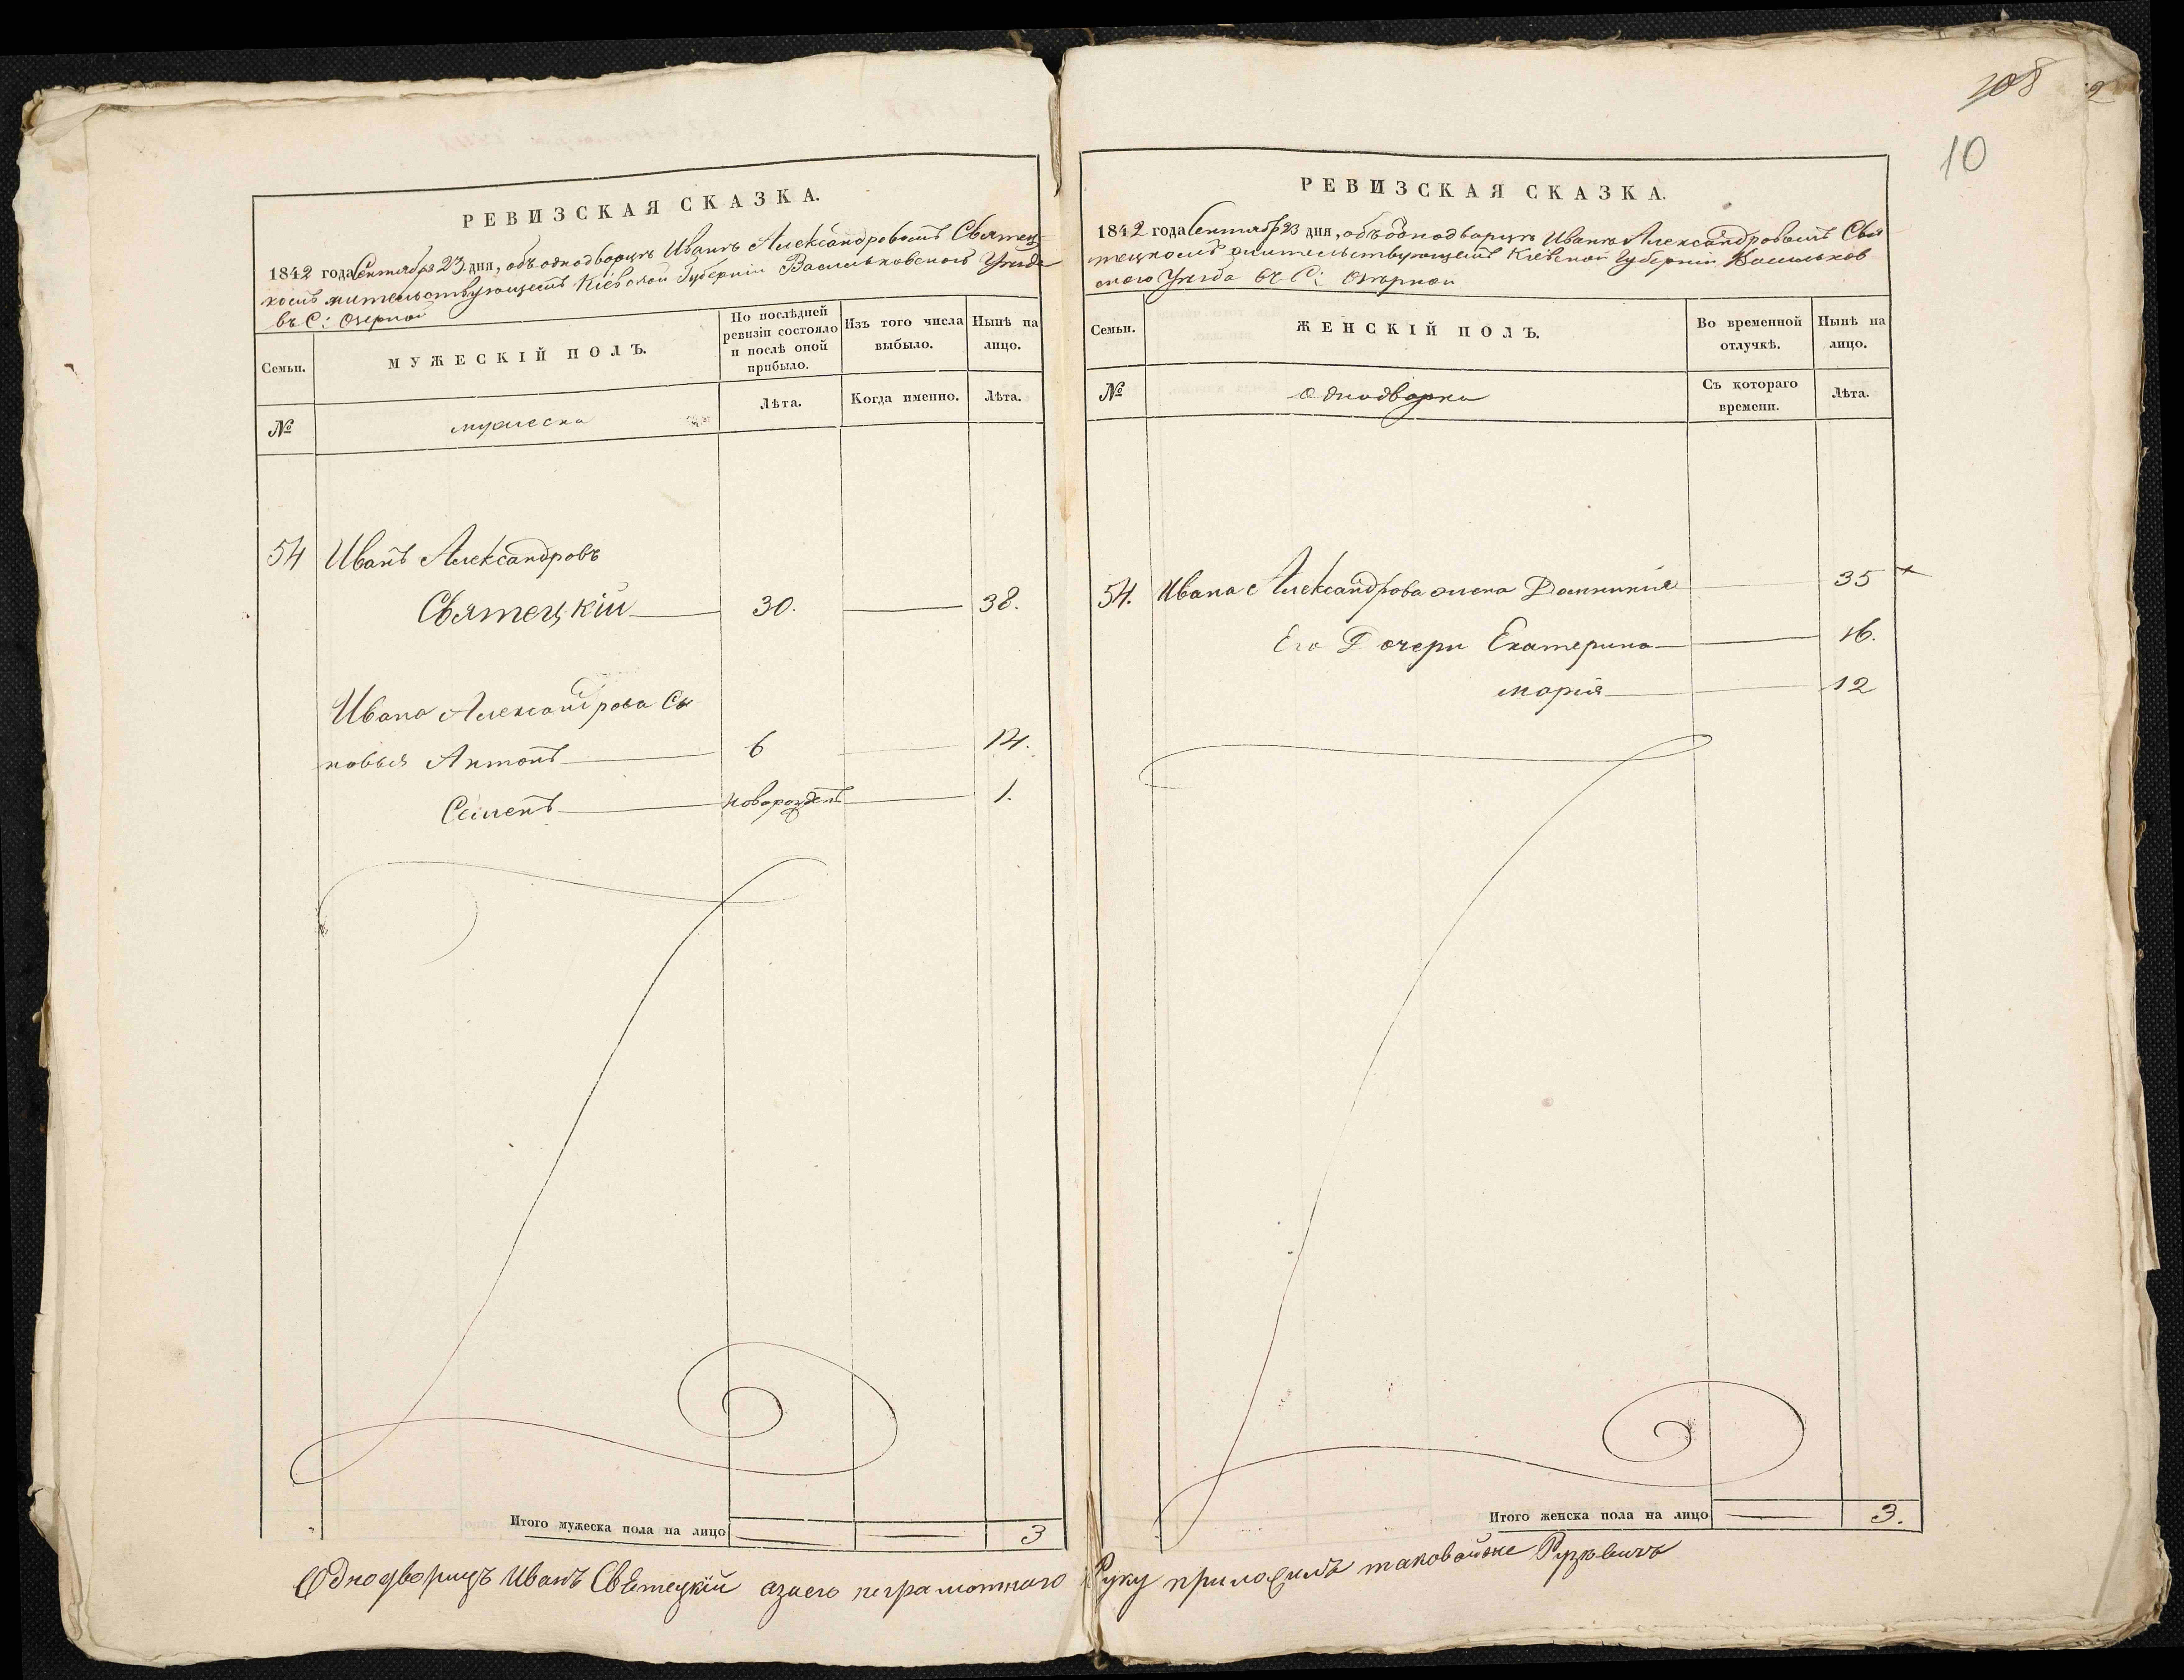 108
2
10
РЕВИЗСКАЯ СКАЗКА.
1842 года Сентября 23 дня, объ однодворцѣ Иванѣ Александровомъ Святец
комъ жительствующемъ Кіевской Губерніи Васильковского Уезда
въ С: Озерной
Семьи.
МУЖЕСКІЙ ПОЛЪ.
По послѣдней
ревизіи состояло
и послѣ оной
прибыло.
Изъ того числа
выбыло.
Нынѣ на
лицо.
№
мужеска
Лѣта.
Когда именно.
Лѣта.
54 Иванъ Александровъ
Святецкій 30. 38.
Ивана Александрова Сы
новья Антонъ 6 14.
Семенъ новорожденъ 1.
Итого мужеска пола на лицо 3
РЕВИЗСКАЯ СКАЗКА.
1842 года Сентября 23 дня, объ однодворцѣ Иванѣ Александровомъ Свя
тецкомъ жительствующемъ Кіевской Губерніи Васильков
ского Уезда въ С: Озѣрной
Семьи.
ЖЕНСКІЙ ПОЛЪ.
Во временной
отлучкѣ.
Нынѣ на
лицо.
№
однодворка
Съ котораго
времени.
Лѣта.
54. Ивана Александрова жена Домникия 35
Его Дочери Екатерина 16.
Марія 12
Итого женска пола на лицо 3.
Однодворицъ Иванъ Свѣтецкій азаего неграмотного Руку приложилъ таковойже Рузѣвичъ